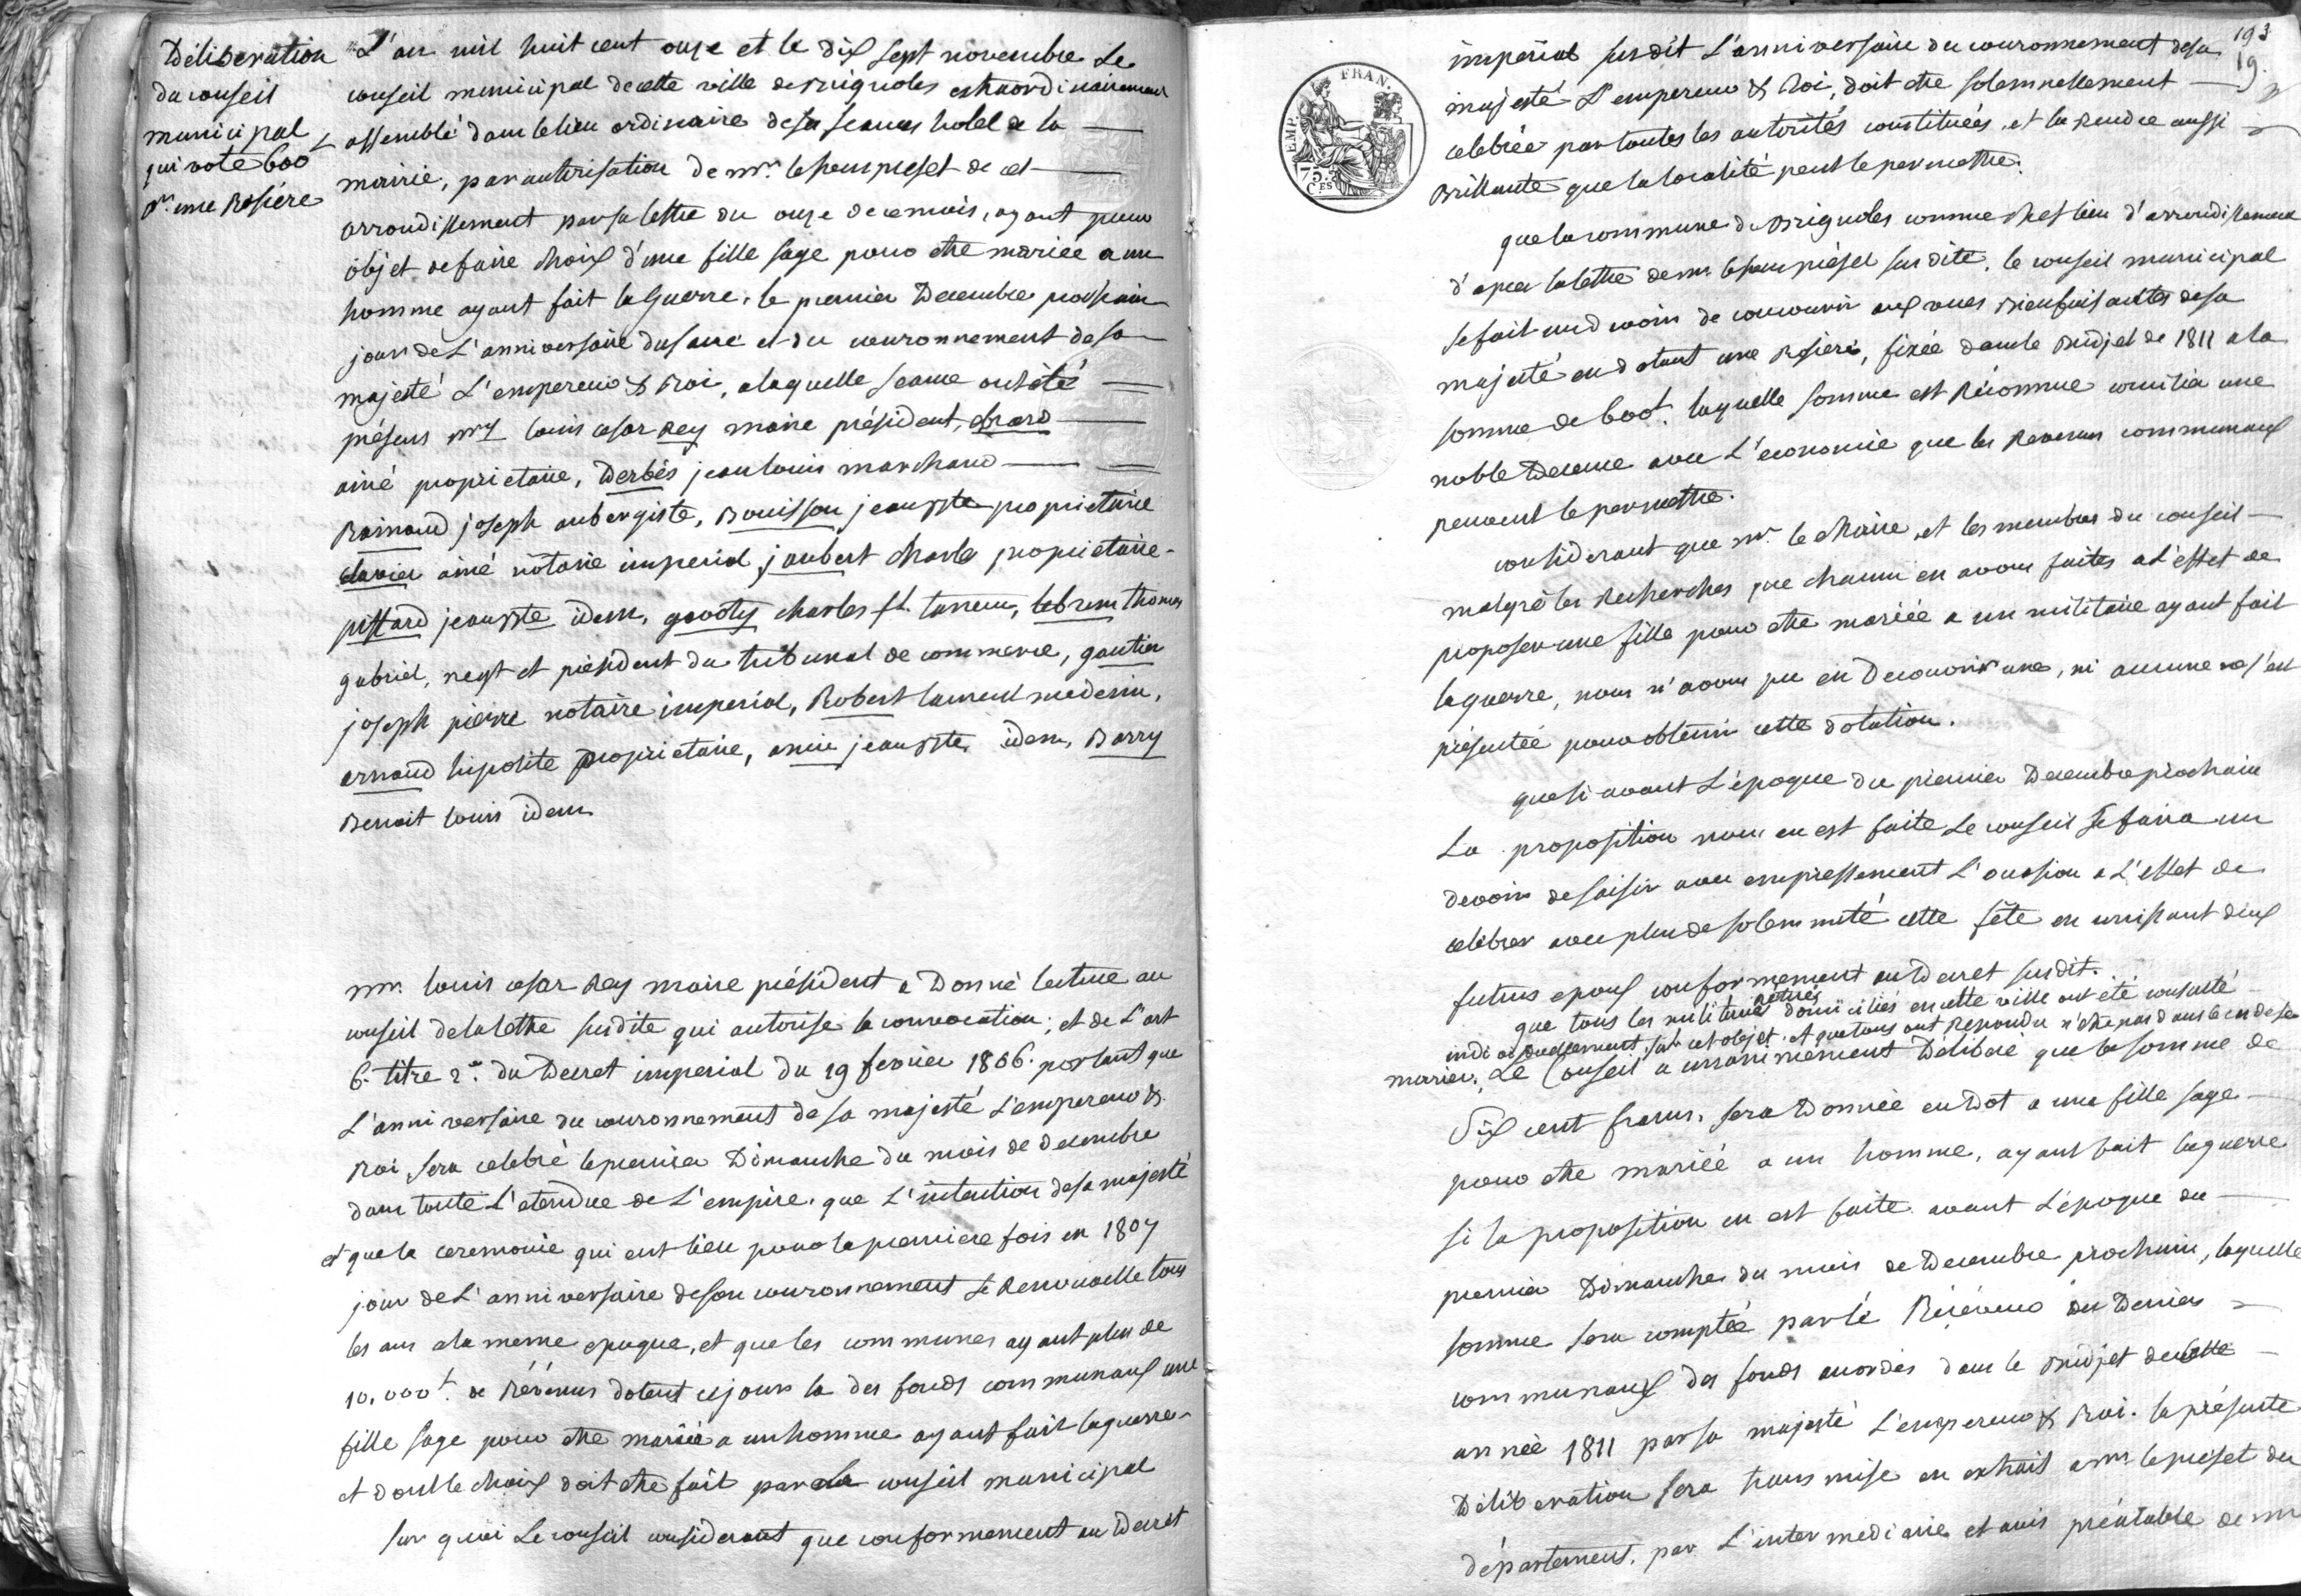 Déliberation
du conseil
municipal
qui vote 600 f
pr. une Rosiére
L'an mil huit cent onze et le dix sept novembre Le
conseil municipal de cette ville de Brignoles extraordinairement
assemblé dans le lieu ordinaire de sa seances hotel de la
mairie, par autorisation de mr. le sous prefet de cet
arrondissement par sa lettre du onze de ce mois, ayant pour
objet de faire choix d'une fille sage pour etre mariée a un
homme ayant fait la guerre, le premier Decembre prochain
jour de L'anniversaire du sacre et du couronnement de sa
majesté L'empereur & Roi, a laquelle seance ont été
présens mrs Louis cesar Rey maire président, 
ainé proprietaire, Derbès jean louis marchand
Rainaud joseph aubergiste, Bouisson jean bte proprietaire
clavier ainé notaire imperial, jaubert charle proprietaire
pissard jean bte idem, goody charles fl. tanneur, lebrun thomas
gabriel, negt et président du tribunal de commerce, gautier
joseph pierre notaire imperial, Robert laurent medecin,
arnaud hipolite proprietaire, amic jean bte idem, Barry
Benoit louis idem
mr. louis cesar Rey maire président a Donné lecture au
conseil de la lettre susdite qui autorise la convocation, et de L'art
6. titre 2e. du Decret imperial du 19 fevrier 1806. portant que
L'anniversaire du couronnement de sa majesté L'empereur &
Roi sera celebré le premier Dimanche du mois de decembre
dans toute L'etendue de L'empire. que L'intention de sa majesté
est que la ceremonie qui eut lieu pour la premiere fois en 1807
jour de L'anniversaire de son couronnement se Renouvelle tous
les ans a la meme epoque, et que les communes ayant plus de
10,000 f. de Révenus dotent ce jour la des fonds communaux une
fille sage pour etre mariée a un homme ayant fait la guerre
et dont le choix doit etre fait par le conseil municipal
sur quoi Le conseil considerant que conformement au Decret
193
19
EMP. FRAN.
75
C.ES
impérial susdit L'anniversaire du couronnement de sa
majesté L'empereur & Roi, doit etre solemnellement
celebrée par toutes les autorités constituées, et la Rendre aussi
Brillante que la localité peut le permettre.
que la commune de Brignoles comme chef lieu d'arrondissement
d'apres la lettre de mr le sous préfet susdite, le conseil municipal
se fait un devoir de concourir aux vues Bienfaisantes de sa
majesté en dotant une Rosiere, fixée dans le Budjet de 1811 a la
somme de 600 f. laquelle somme est Réconnue concilier une
noble Decence avec L'economie que les Revenus communaux
peuvent le permettre.
considerant que mr. le Maire, et les membres du conseil
malgré les Recherches que chacun en avons faites a L'effet de
proposer une fille pour etre mariée a un militaire ayant fait
la guerre, nous n'avons pu en Decouvrir une, ni aucune ne s'est
présentée pour obtenir cette dotation.
que si avant L'époque du premier Decembre prochain
La proposition nous en est faite Le conseil se faira un
devoir de saisir avec empressement L'occasion a L'effet de
celebrer avec plus de solemnité cette fête en unissant deux
futurs epoux conformement au Decret susdit.
que tous les militaires retirés domiciliés en cette ville ont été consulté
individuellement sur cet objet, et que tous ont Repondu n'etre pas dans le cas de se
marier. Le Conseil a unanimement Déliberé que la somme de
Six cent francs, sera Donnée en Dot a une fille sage
pour etre mariée a un homme, ayant fait la guerre
si la proposition en est faite avant L'époque du
premier Dimanche du mois de Decembre prochain, laquelle
somme sera comptée par le Réceveur des Deniers
communaux des fonds accordés dans le Budjet de cette
année 1811 par sa majesté L'empereur & Roi. la présente
Déliberation sera transmise en extrait a mr. le préfet du
département, par L'intermediaire et avis préalable de mr